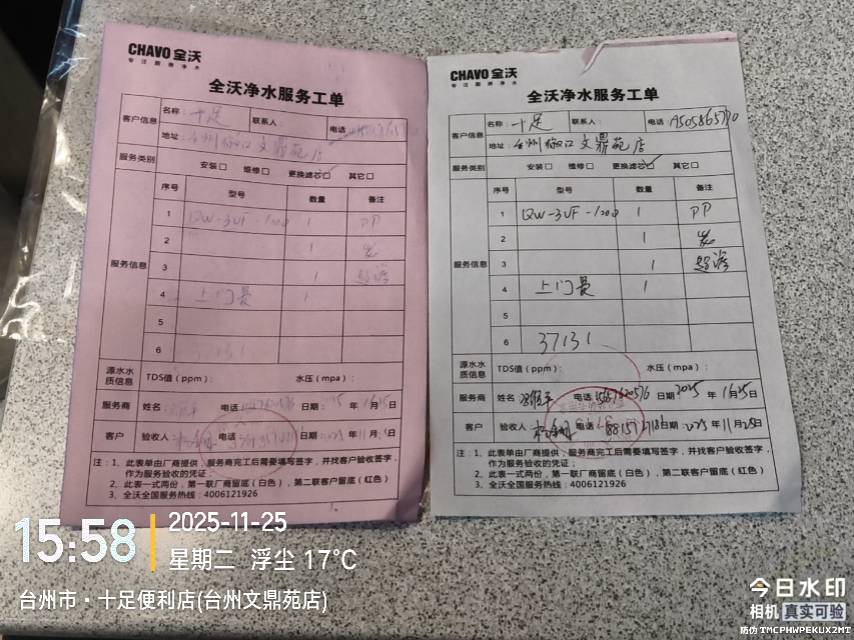 CHAVO 全沃
专注厨房净水
全沃净水服务工单
客户信息
名称：十足
联系人：
电话
地址：台州椒江文鼎苑店
服务类别
安装□ 维修□ 更换滤芯□ 其它□
服务信息
序号 型号 数量 备注
1 QW-3UF-1000 1 PP
2 1 炭
3 1
4 上门费 1
5
6 37131
源水水质信息
TDS值（ppm）： 水压（mpa）：
服务商 姓名： 电话： 日期：2025 年 11月25日
客户 验收人： 电话： 日期：2025年11月25日
注：1、此表单由厂商提供，服务商完工后需要填写签字，并找客户验收签字，
作为服务验收的凭证；
2、此表一式两份，第一联厂商留底（白色），第二联客户留底（红色）
3、全沃全国服务热线：4006121926
CHAVO 全沃
专注厨房净水
全沃净水服务工单
客户信息
名称：十足
联系人：
电话
地址：台州椒江文鼎苑店
服务类别
安装□ 维修□ 更换滤芯☑ 其它□
服务信息
序号 型号 数量 备注
1 QW-3UF-1000 1 PP
2 1 炭
3 1
4 上门费 1
5
6 37131
源水水质信息
TDS值（ppm）： 水压（mpa）：
服务商 姓名： 电话： 日期：2025 年 11月25日
客户 验收人： 电话： 日期：2025年11月25日
注：1、此表单由厂商提供，服务商完工后需要填写签字，并找客户验收签字，
作为服务验收的凭证；
2、此表一式两份，第一联厂商留底（白色），第二联客户留底（红色）
3、全沃全国服务热线：4006121926
15:58
2025-11-25
星期二 浮尘 17°C
台州市·十足便利店(台州文鼎苑店)
今日水印
相机 真实可验
防伪 TMCPHWPEKUX2MT